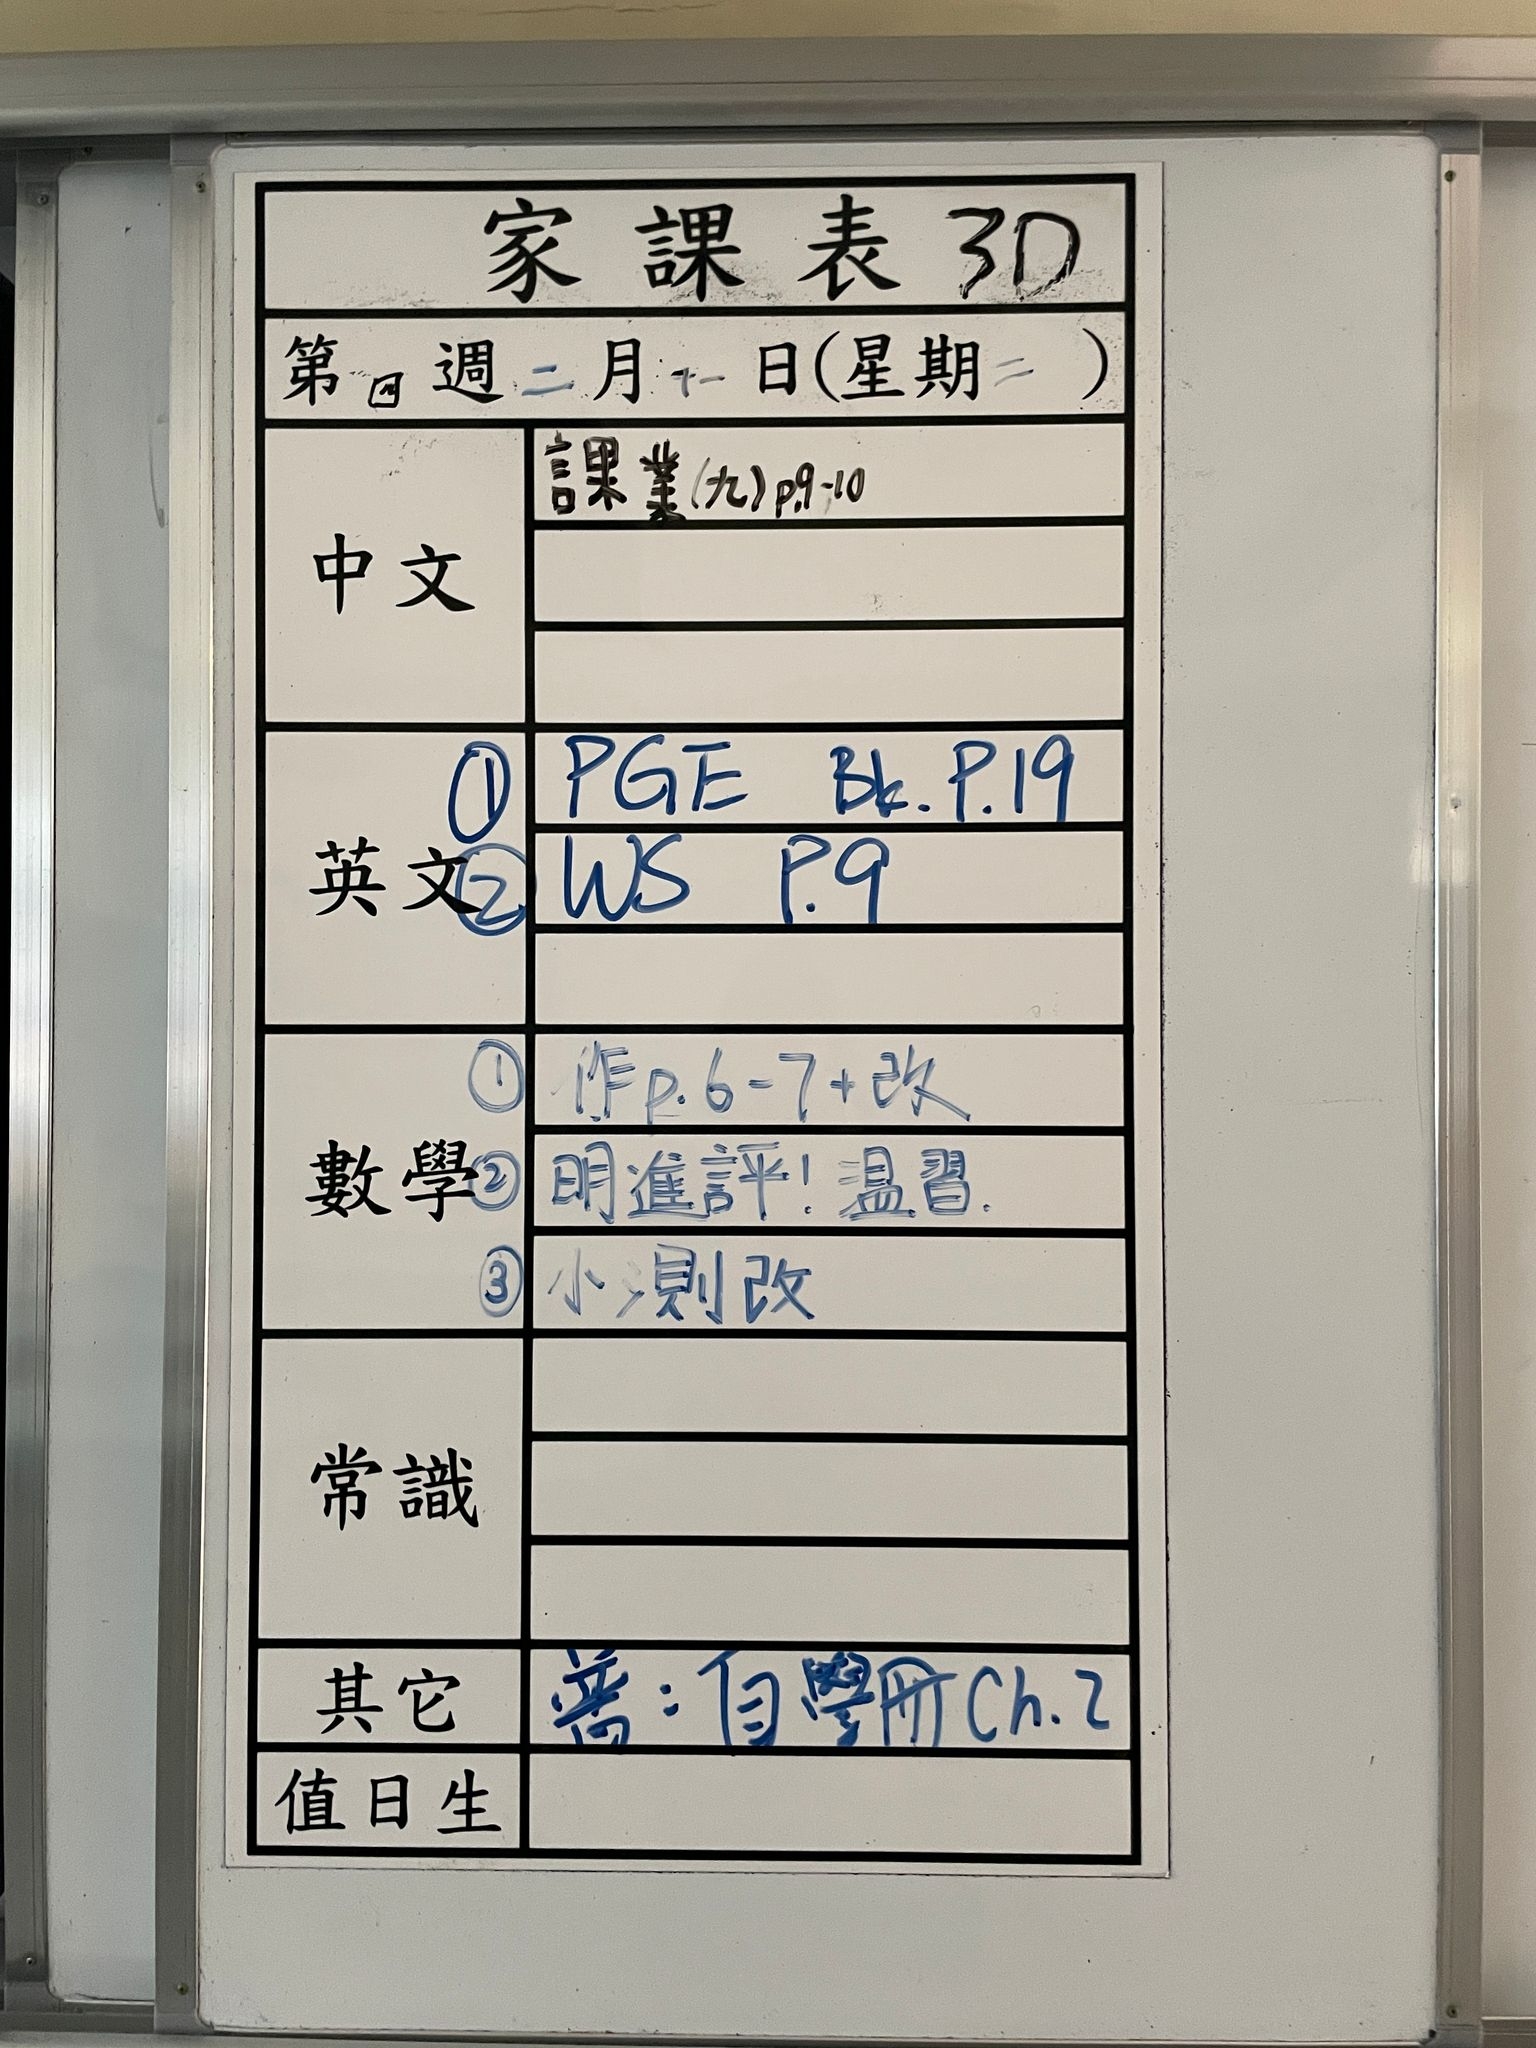 家課表 3D
第四週二月十一日(星期二)
中文
課業(九)p.9-10
英文
① PGE Bk. P.19
② WS P.9
數學
① 作p.6-7+改
② 明進評!温習.
③ 小測改
常識
其它
普:自學冊Ch.2
值日生